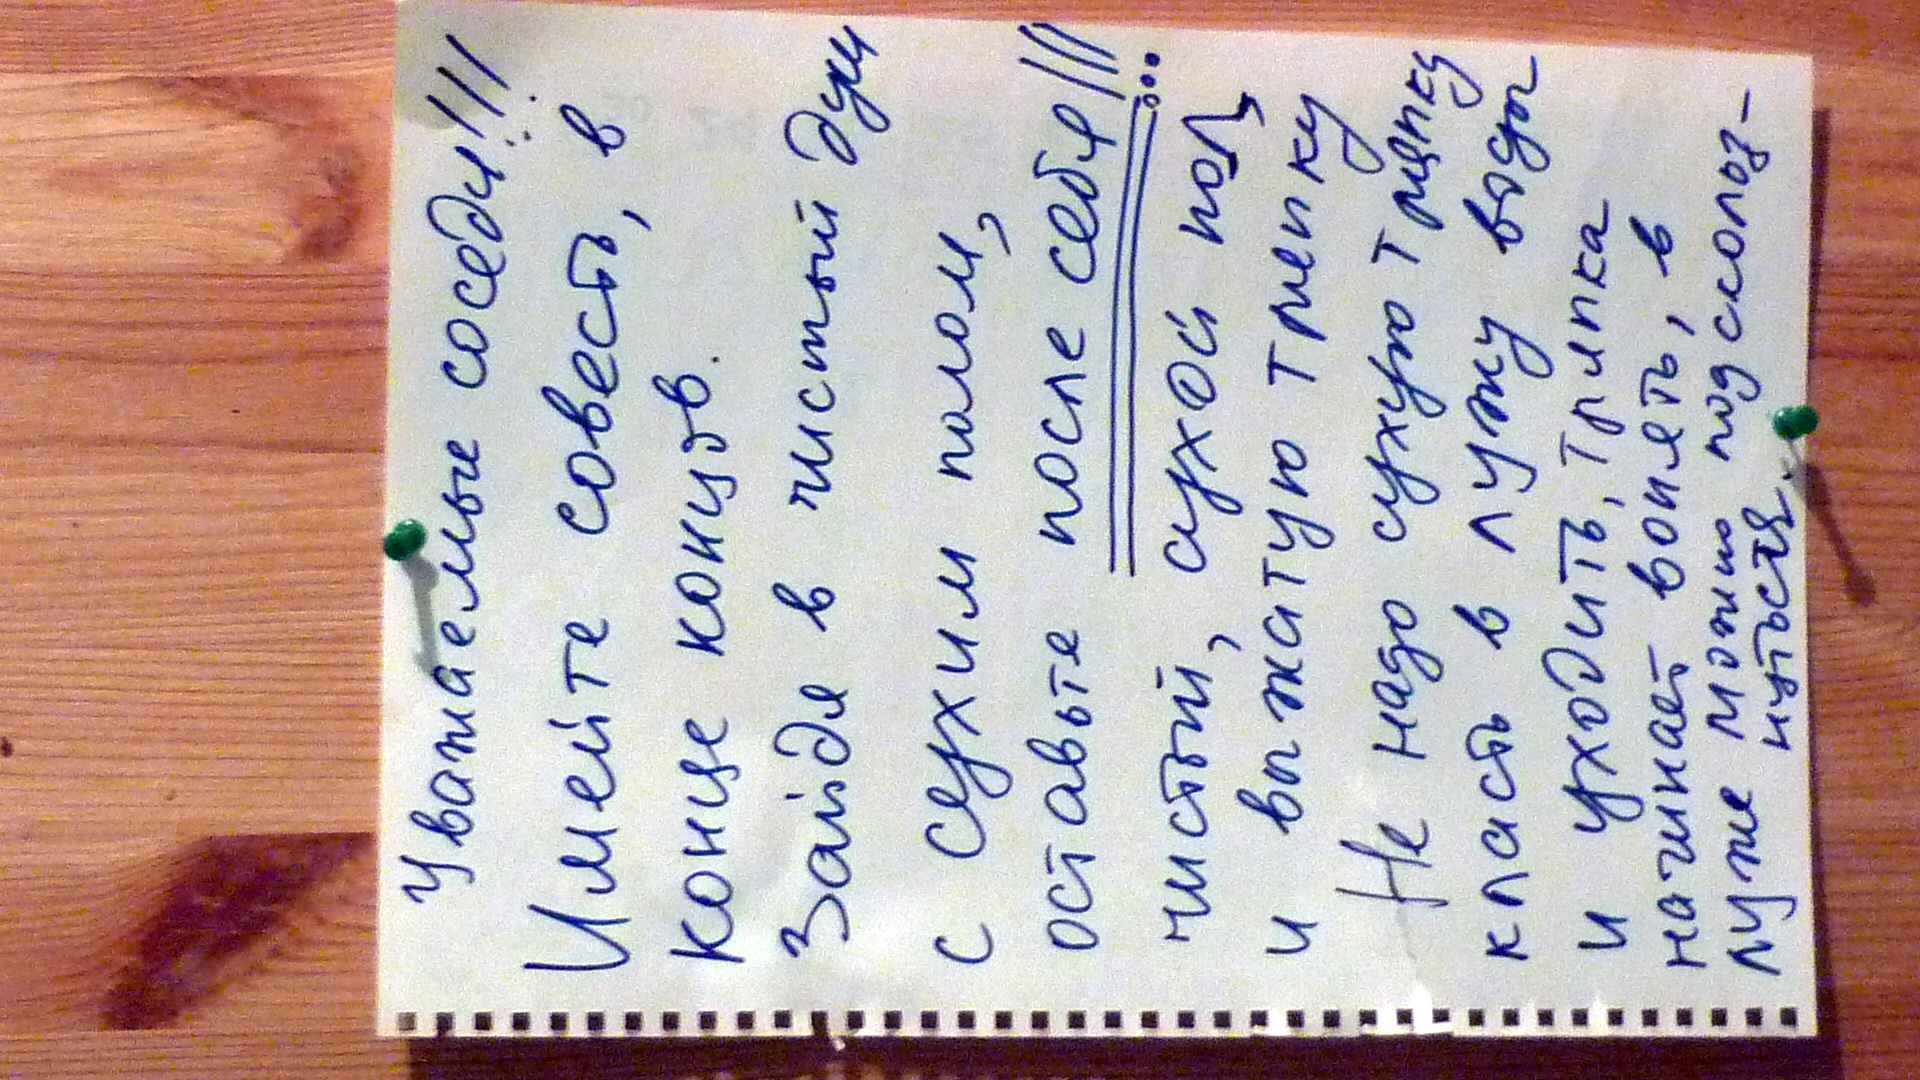 Уважаемые соседи!!!
Имейте совесть, в
конце концов.
Зайдя в чистый душ
с сухим полом,
оставьте после себя!!!
чистый, сухой пол
и выжатую тряпку
Не надо сухую тряпку
класть в лужу воды
и уходить, тряпка
начинает вонять, в
луже можно подскольз-
нуться.